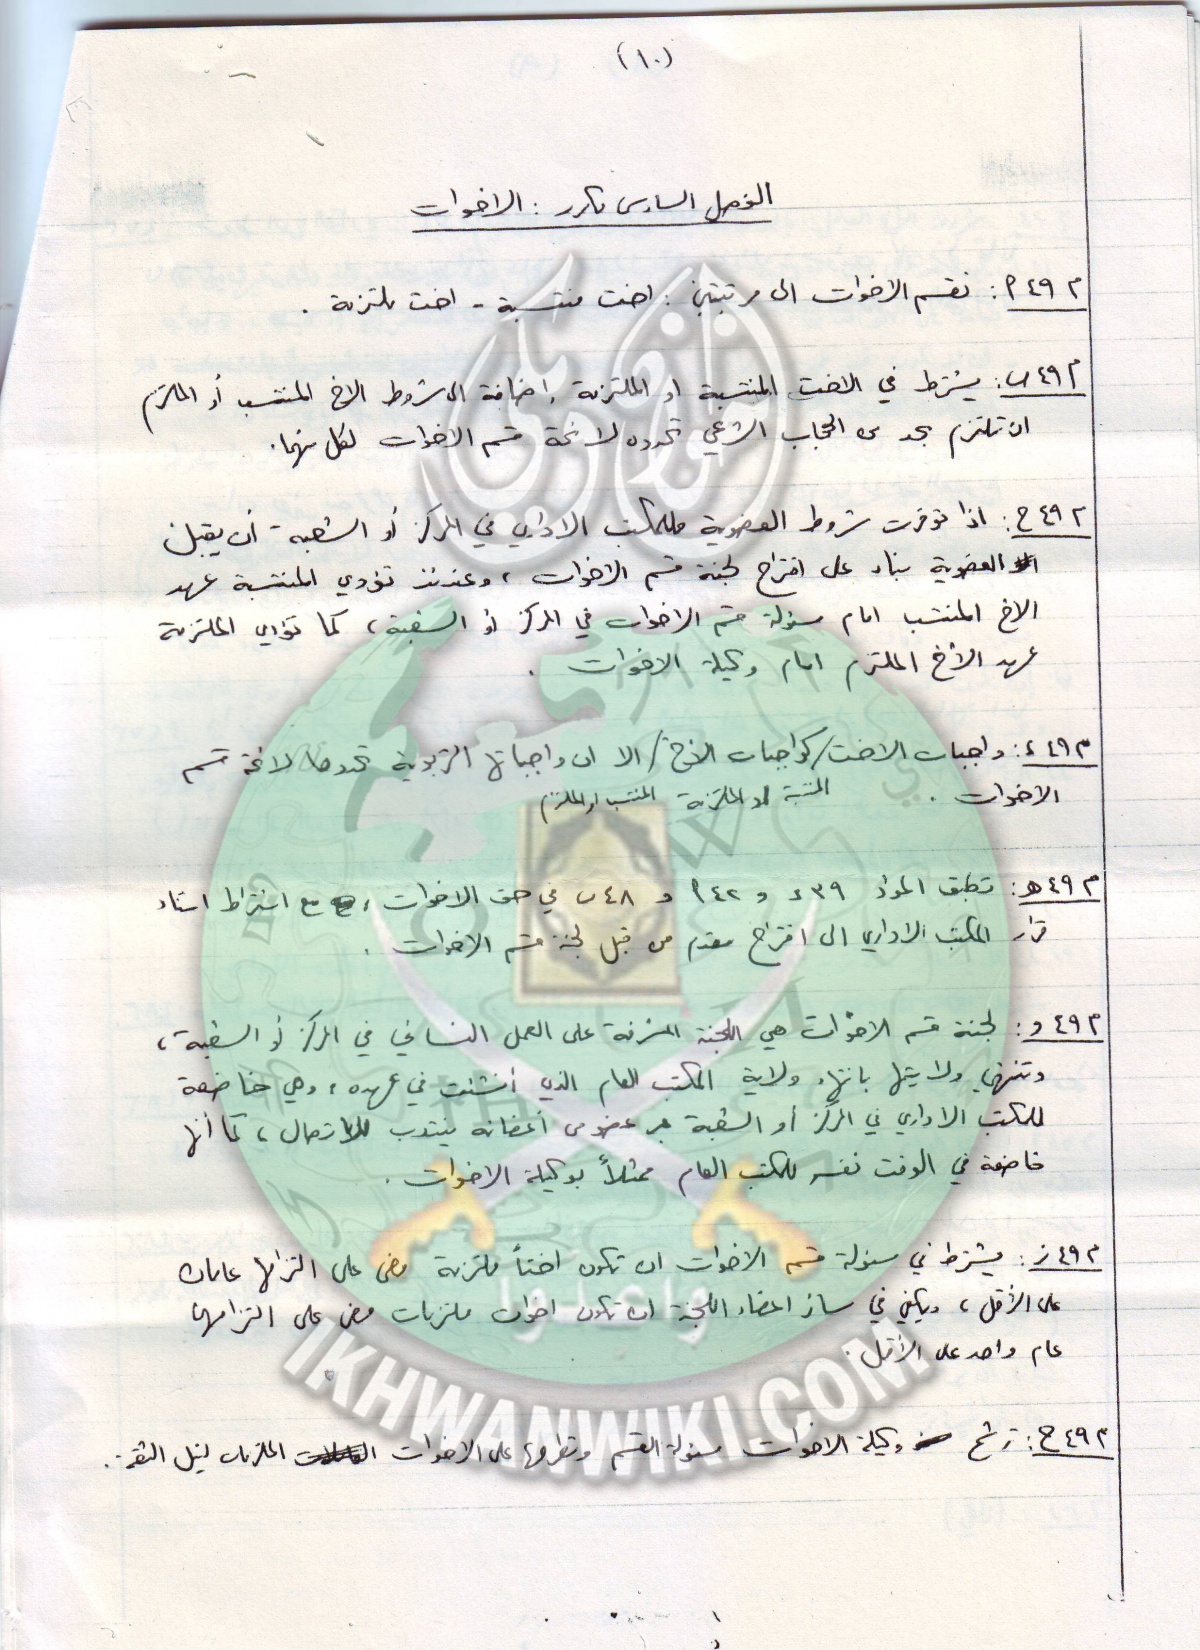 (١٠)
الفصل السادس مكرر : الاخوات
م ٤٩ أ : تقسم الاخوات الى مرتبتين : اخت منتسبة - اخت ملتزمة .
م ٤٩ ب : يشترط في الاخت المنتسبة او الملتزمة إضافة الى شروط الاخ المنتسب أو الملتزم
ان تلتزم بحد من الحجاب الشرعي تحدده لائحة قسم الاخوات لكل منهما .
م ٤٩ ج : اذا توفرت شروط العضوية فللمكتب الاداري في المركز أو الشعبة أن يقبل
العضوية بناء على اقتراح لجنة قسم الاخوات ، وعندئذ تؤدي المنتسبة عهد
الاخ المنتسب امام مسئولة قسم الاخوات في المركز أو الشعبة ، كما تؤدي الملتزمة
عهد الأخ الملتزم امام وكيلة الاخوات .
م ٤٩ د : واجبات الاخت / كواجبات الاخ / الا ان واجباتها التربوية تحددها لائحة قسم
الاخوات . المنتسبة او الملتزمة المنتسب او الملتزم
م ٤٩ هـ : تطبق المواد ٣٩ د و ٤٢ أ و ٤٨ ب في حق الاخوات ، مع اشتراط استناد
قرار المكتب الاداري الى اقتراح مقدم من قبل لجنة قسم الاخوات .
م ٤٩ و : لجنة قسم الاخوات هي اللجنة المشرفة على العمل النسائي في المركز أو الشعبة ،
وتنتهي ولايتها بانتهاء ولاية المكتب العام الذي أنشئت في عهده ، وهي خاضعة
للمكتب الاداري في المركز أو الشعبة عبر عضو من أعضائه ينتدب للاتصال ، كما أنها
خاضعة في الوقت نفسه للمكتب العام ممثلاً بوكيلة الاخوات .
م ٤٩ ز : يشترط في مسئولة قسم الاخوات ان تكون اختاً ملتزمة مضى على التزامها عامان
على الأقل ، ويكفي في سائر اعضاء اللجنة ان تكون اخوات ملتزمات مضى على التزامها
عام واحد على الأقل .
م ٤٩ ح : ترشح وكيلة الاخوات مسئولة القسم وتطرحها على الاخوات الملتزمات لنيل الثقة .
واعدوا
IKHWANWIKI.COM